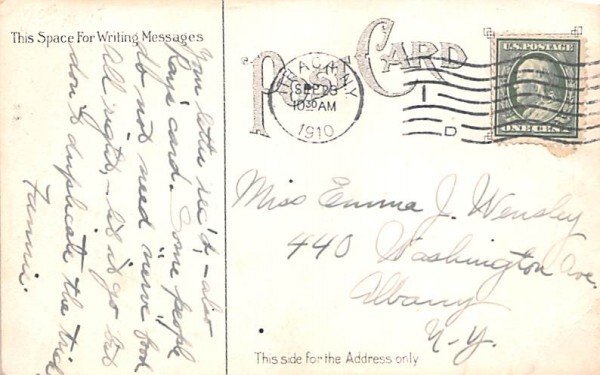 This Space For Writing Messages
Your letter rec'd, - also
Rays' card. Some people
do not need nerve food
All right, - let it go but
don't duplicate the trick
Fannie.
POST CARD
N.Y.
SEP 28
10 30 AM
1910
D
U.S. POSTAGE
ONE CENT
Miss Emma J. Wensley
440 Washington Ave.
Albany
N-Y.
This side for the Address only